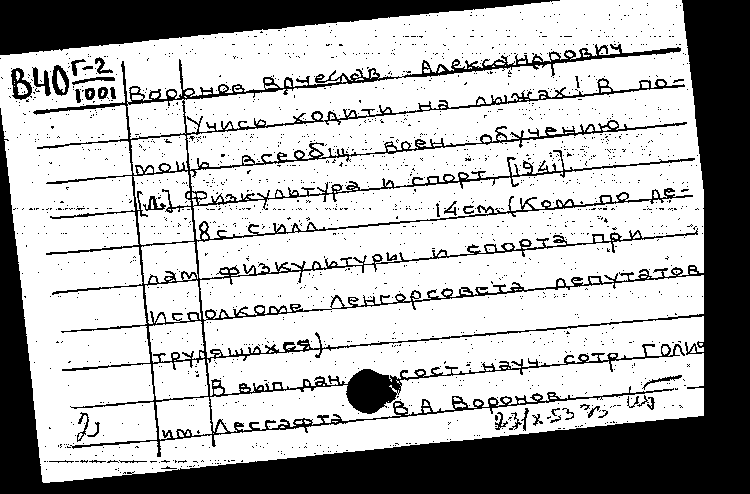 В40 Г-2/1001
Воронов, Вячеслав Александрович
Учись ходить на лыжах! В по-
мощь всеобщ. воен. обучению.
[Л.], Физкультура и спорт, [1941].
8 с. с илл. 14 см. (Ком. по де-
лам физкультуры и спорта при
Исполкоме Ленгорсовета депутатов
трудящихся).
В вып. дан. сост.: науч. сотр. ГОЛИФК
им. Лесгафта В. А. Воронов.
23/X-53